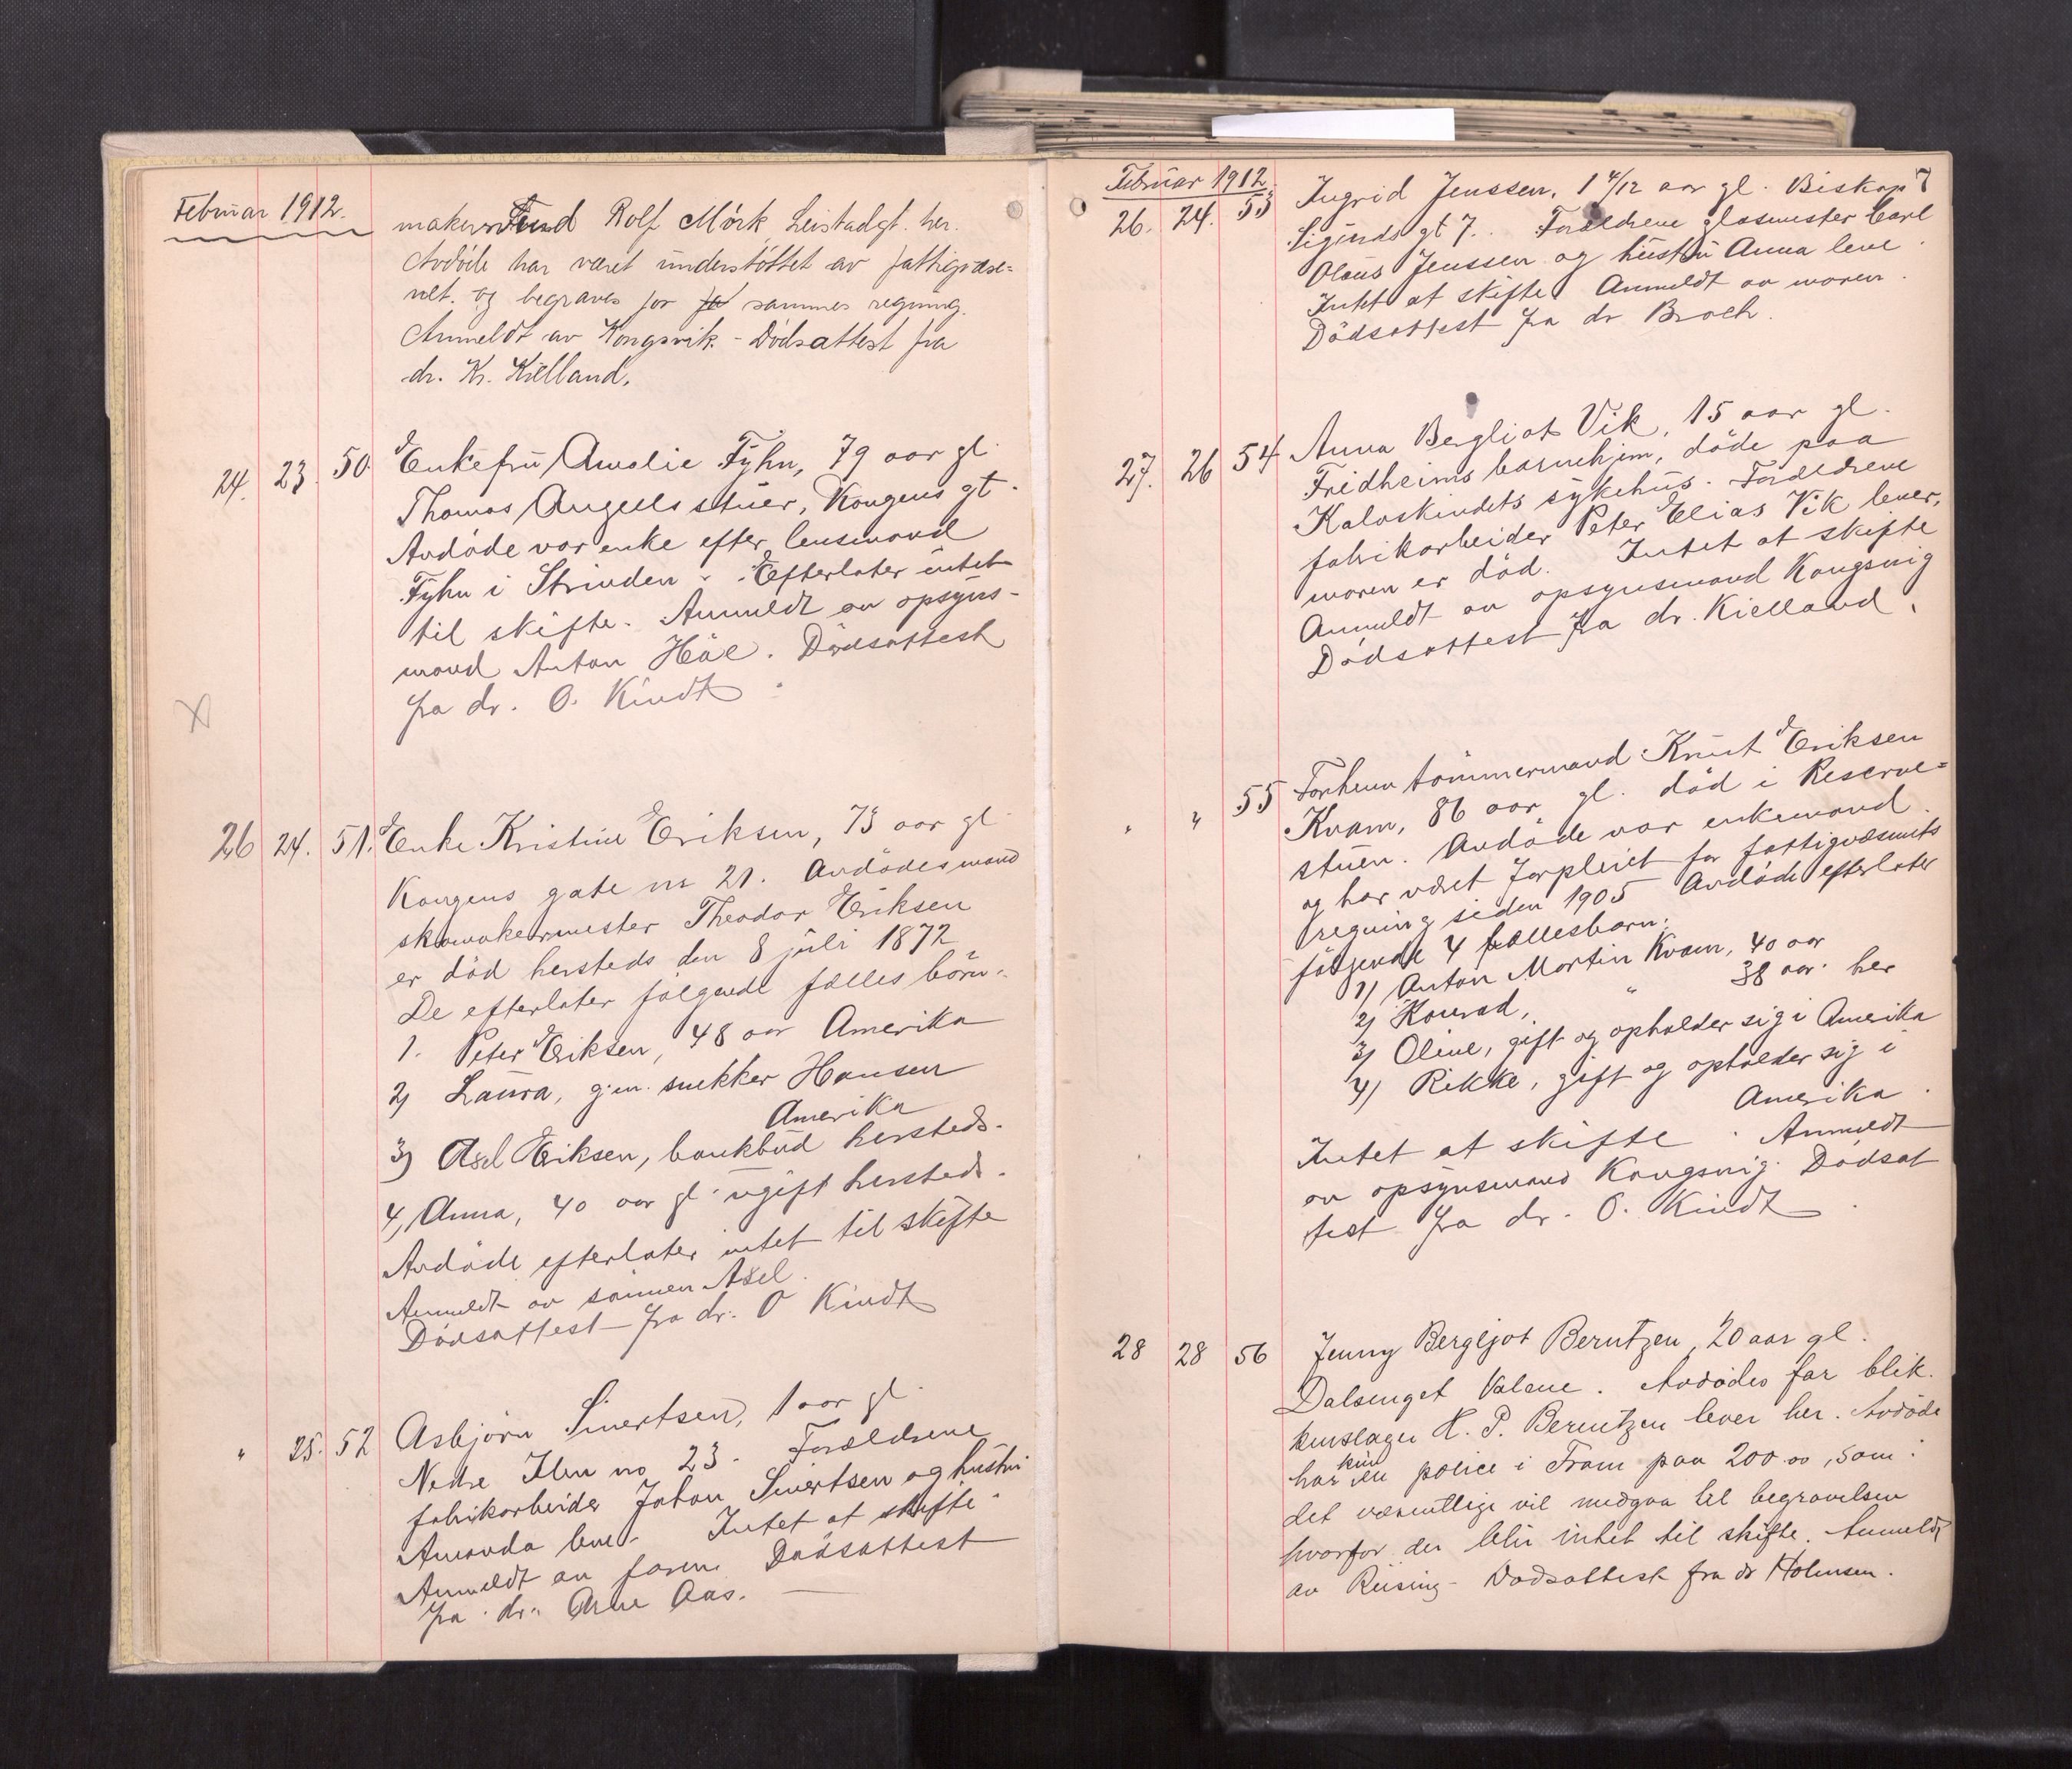 Februar 1912.
makersvend Rolf Mörk Leistadgt. her.
Avdöde har været understöttet av fattigvæse=
net. og begraves for sammes regning.
Anmeldt av Kongsvik - Dödsattest fra
dr. Kr. Kielland.
24. 23. 50. Enkefru Amalie Fyhn, 79 aar gl
Thomas Angells stuer, Kongens gt.
Avdöde var enke efter lensmand
Fyhn i Strinden. Efterlater intet
til skifte. Anmeldt av opsyns-
mand Anton Höe. Dödsattest
fra dr. O. Kindt
X
26 24. 51. Enke Kristine Eriksen, 73 aar gl
Kongens gate nr 21. Avdödes mand
skomakermester Theodor Eriksen
er död hersteds den 8 juli 1872
De efterlater följende fælles börn.
1. Peter Eriksen, 48 aar Amerika
2) Laura, g.m. snekker Hansen
Amerika
3) Axel Eriksen, bankbud hersteds.
4) Anna, 40 aar gl. ugift hersteds.
Avdöde efterlater intet til skifte
Anmeldt av sönnen Axel.
Dödsattest fra dr. O Kindt
" 25. 52 Asbjörn Sivertsen, 1 aar gl
Nedre Ilen no 23. Forældrene
fabrikarbeider Johan Sivertsen og hustru
Amanda lever. Intet at skifte.
Anmeldt av faren. Dödsattest
fra dr. Arne Aas.
Februar 1912. 7
26. 24. 53 Ingrid Jenssen, 1 4/12 aar gl. Biskop
Sigurds gt 7. Forældrene glasmester Carl
Olaus Jenssen og hustru Anna leve.
Intet at skifte. Anmeldt av moren.
Dödsattest fra dr Broch.
27. 26 54 Anna Bergliot Vik, 15 aar gl.
Fridheims barnehjem, döde paa
Kalvskindets sykehus. Forældrene
fabrikarbeider Peter Elias Vik lever,
moren er död. Intet at skifte
Anmeldt av opsynsmand Kongsvig
Dödsattest fra dr. Kielland.
" " 55 Forhenv tömmermand Knut Eriksen
Kvam, 86 aar gl. död i Reserve=
stuen. Avdöde var enkemand.
og har været forpleiet for fattigvæsenets
regning siden 1905 Avdöde efterlater
följende 4 fællesbarn:
1) Anton Martin Kvam, 40 aar
2) Konrad, " 38 aar. her
3) Oline, gift og opholder sig i Amerika
4) Rikke, gift og opholder sig i
Amerika.
Intet at skifte. Anmeldt
av opsynsmand Kongsvig. Dödsat
test fra dr. O. Kindt.
28 28 56 Jenny Bergljot Berntzen, 20 aar gl.
Dalsenget Valene. Avdödes far blik.
kenslager H. P. Berntzen lever her. Avdöde
har kun en police i Fram paa 200.00, som i
det væsentlige vil medgaa til begravelsen
hvorfor der blir intet til skifte. Anmeldt
av Reising - Dödsattest fra dr Holmsen.